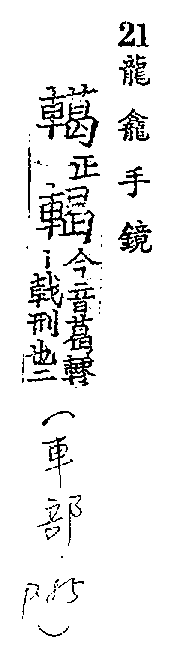 21 龍龕手鏡
轕正輵今音葛轇
〻戟刑也二
(車部. P.85)